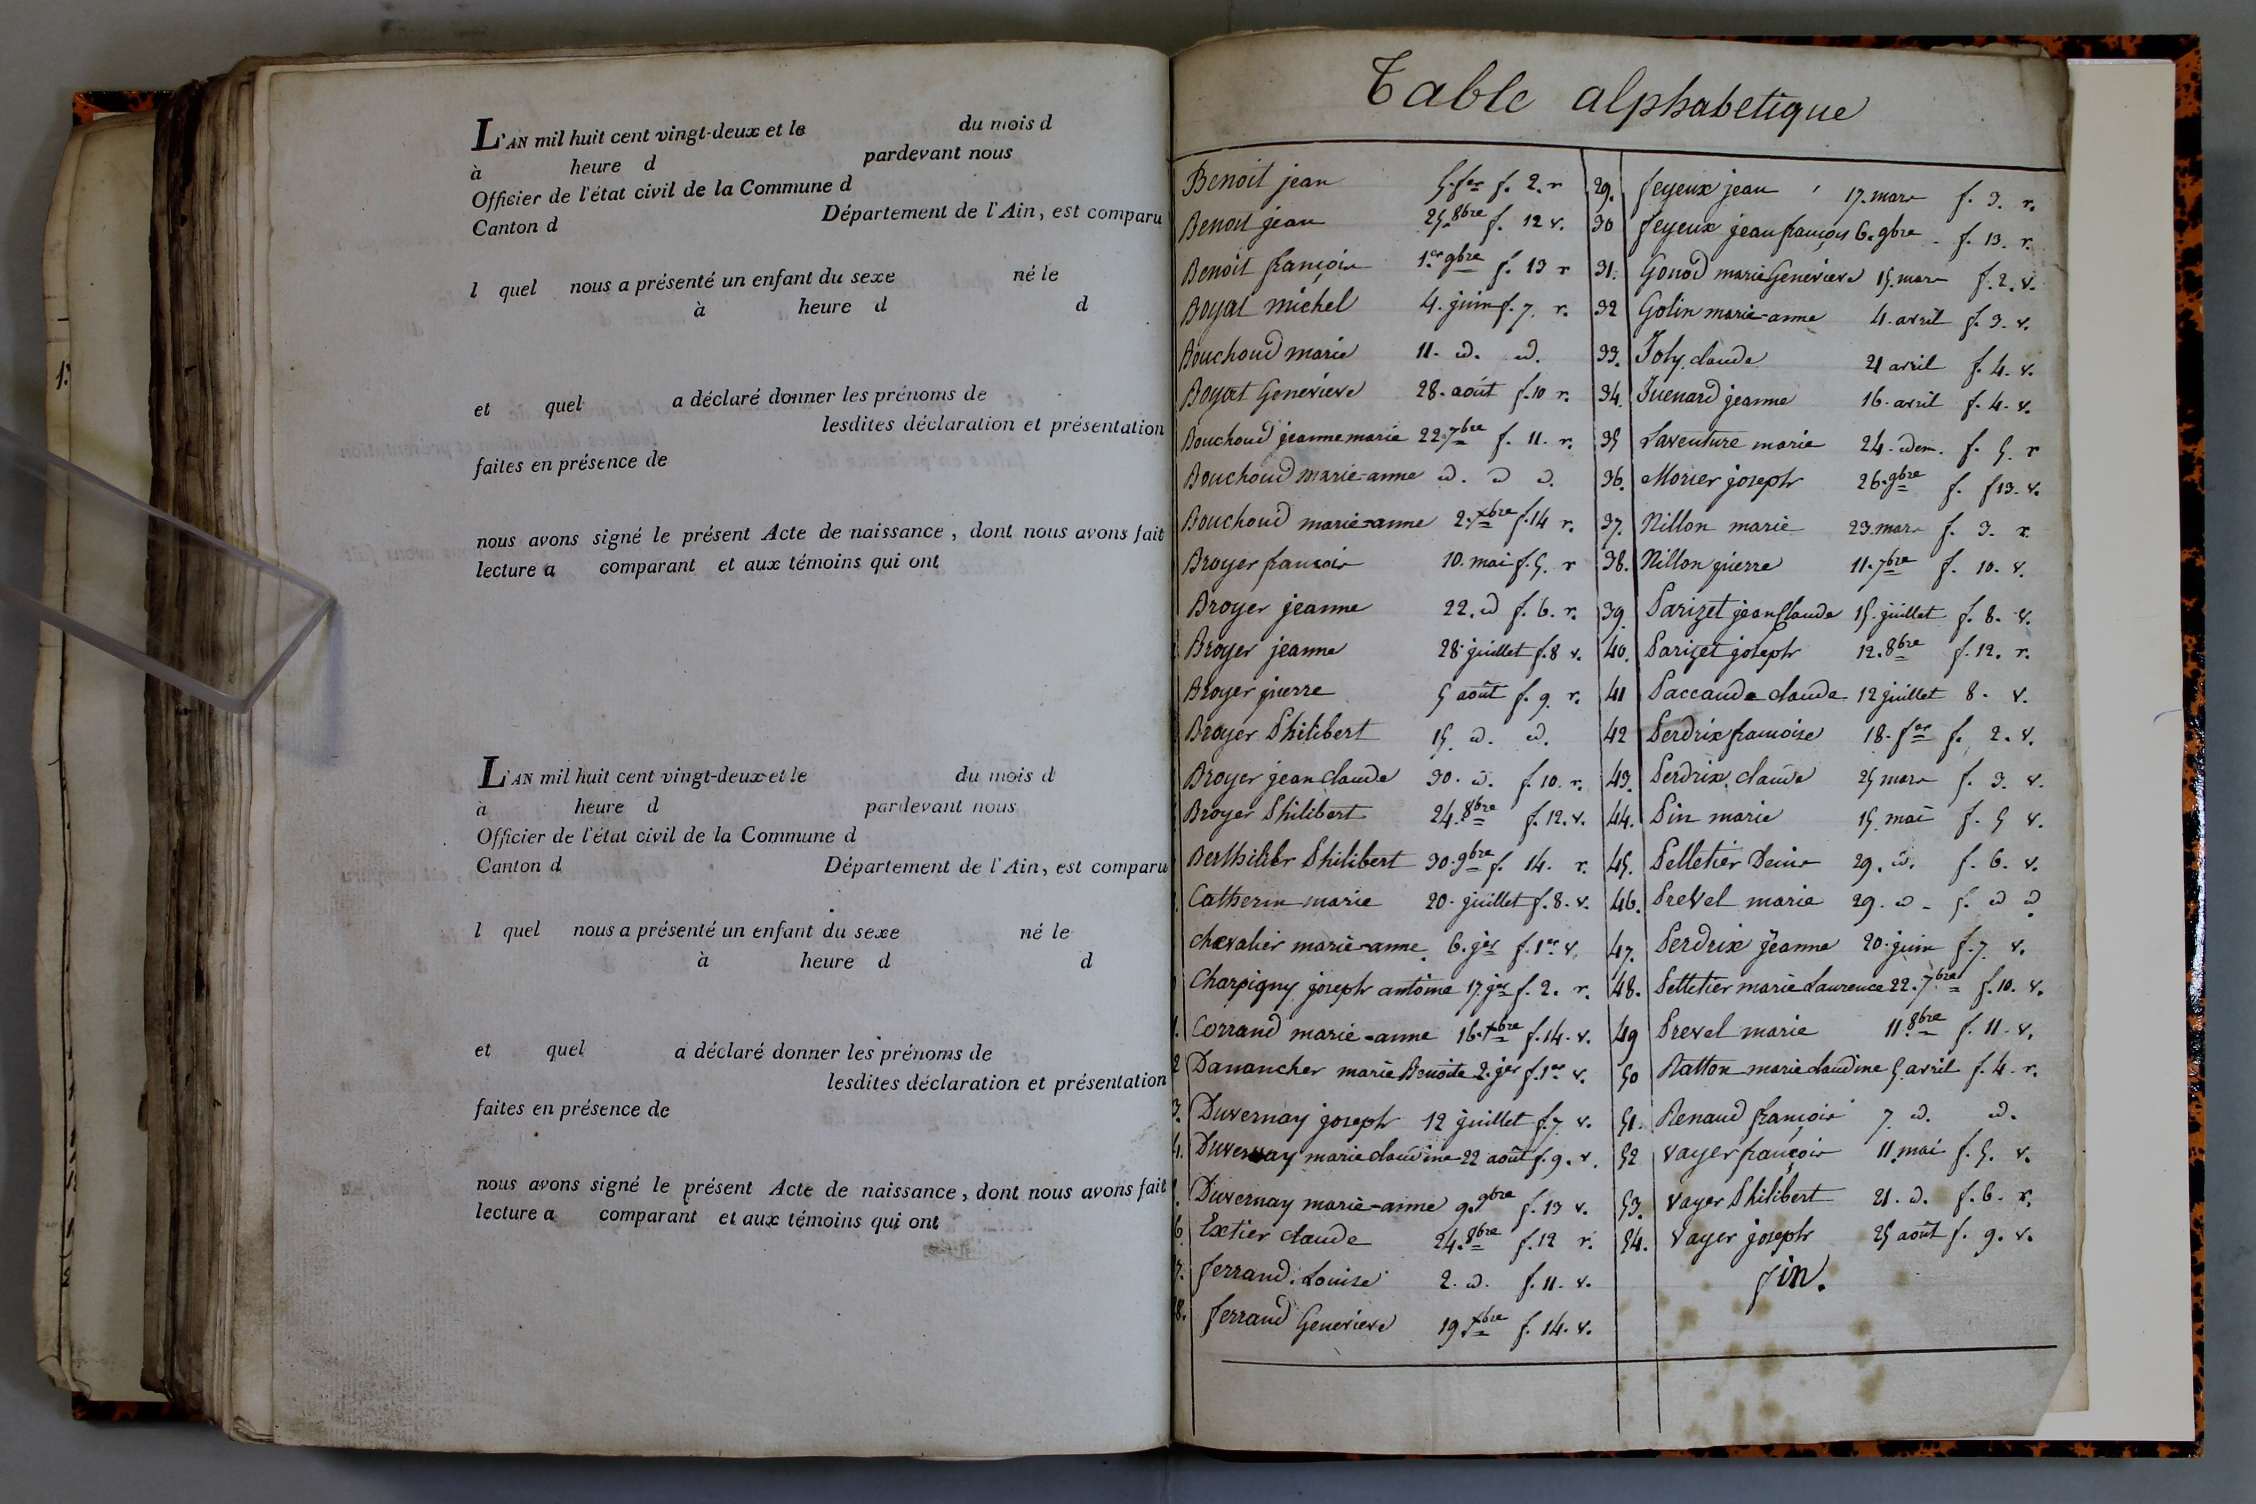 L'AN mil huit cent vingt-deux et le du mois d
à heure d pardevant nous
Officier de l'état civil de la Commune d
Canton d Département de l'Ain, est comparu
l quel nous a présenté un enfant du sexe né le
à heure d d
et quel a déclaré donner les prénoms de
lesdites déclaration et présentation
faites en présence de
nous avons signé le présent Acte de naissance, dont nous avons fait
lecture a comparant et aux témoins qui ont
L'AN mil huit cent vingt-deux et le du mois d
à heure d pardevant nous
Officier de l'état civil de la Commune d
Canton d Département de l'Ain, est comparu
l quel nous a présenté un enfant du sexe né le
à heure d d
et quel a déclaré donner les prénoms de
lesdites déclaration et présentation
faites en présence de
nous avons signé le présent Acte de naissance, dont nous avons fait
lecture a comparant et aux témoins qui ont
Table alphabetique
Benoit jean 5. fer f. 2. r
Benoit jean 25. 8bre f. 12 v.
Benoit françois 1er 9bre f. 13 r
Boyat michel 4. juin f. 7. r.
Bouchoud marie 11. d. d.
Boyat Genevieve 28. août f. 10 r.
Bouchoud jeanne marie 22. 7bre f. 11. r.
Bouchoud marie-anne d. d d.
Bouchoud marie-anne 2. xbre f. 14 r.
Broyer françois 10. mai f. 5. r
Broyer jeanne 22. d f. 6. r.
Broyer jeanne 28 juillet f. 8 v.
Broyer pierre 5 août f. 9 r.
Broyer Philibert 15 d. d.
Broyer jean claude 30. d. f. 10. r.
Broyer Philibert 24. 8bre f. 12. v.
Berthilier Philibert 30. 9bre f. 14. r.
Catherin marie 20. juillet f. 8. v.
chevalier marie-anne 6. jer f. 1er v.
Charpigny joseph antoine 17. jer f. 2. r.
1. Corrand marie-anne 16. xbre f. 14. v.
2 Danancher marie Benoite 2. jer f. 1er v.
3. Duvernay joseph 12 juillet f. 7 v.
4. Duvernay marie claudine 22 août f. 9. v.
Duvernay marie-anne 9. 9bre f. 13 v.
6. Extier claude 24. 8bre f. 12 r.
7. ferrand Louise 2. d. f. 11. v.
8. ferrand Genevieve 19. xbre f. 14. v.
29. feyeux jean 17. mars f. 3. r.
30 feyeux jean françois 6. 9bre f. 13. r.
31. Gonod marie Genevieve 15. mars f. 2. v.
32 Golin marie-anne 4. avril f. 3. v.
33. Joly claude 21 avril f. 4. v.
34. Juenard jeanne 16. avril f. 4. v.
35 Laventure marie 24. idem. f. 5. r
36. Morier joseph 26. 9bre f. f 13. v.
37. Nillon marie 23. mars f. 3. r.
38. Nillon pierre 11. 7bre f. 10. v.
39. Parizet jean Claude 15. juillet f. 8. v.
40. Parizet joseph 12. 8bre f. 12. r.
41 Paccaude claude 12 juillet 8. v.
42 Perdrix françoise 18. fer f. 2. v.
43. Perdrix claude 25 mars f. 3. v.
44. Pin marie 15. mai f. 5 v.
45. Pelletier Denis 29. d. f. 6. v.
46. Prevel marie 29. d. f. d d
47. Perdrix jeanne 20. juin f. 7 v.
48. Pelletier marie Laurence 22. 7bre f. 10. v.
49 Prevel marie 11. 8bre f. 11. v.
50 Ratton marie claudine 5. avril f. 4. r.
51. Renaud françois 7. d. d.
52 vayer françois 11. mai f. 5. v.
53. vayer Philibert 21. d. f. 6. r.
54. vayer joseph 25 août f. 9. v.
fin.